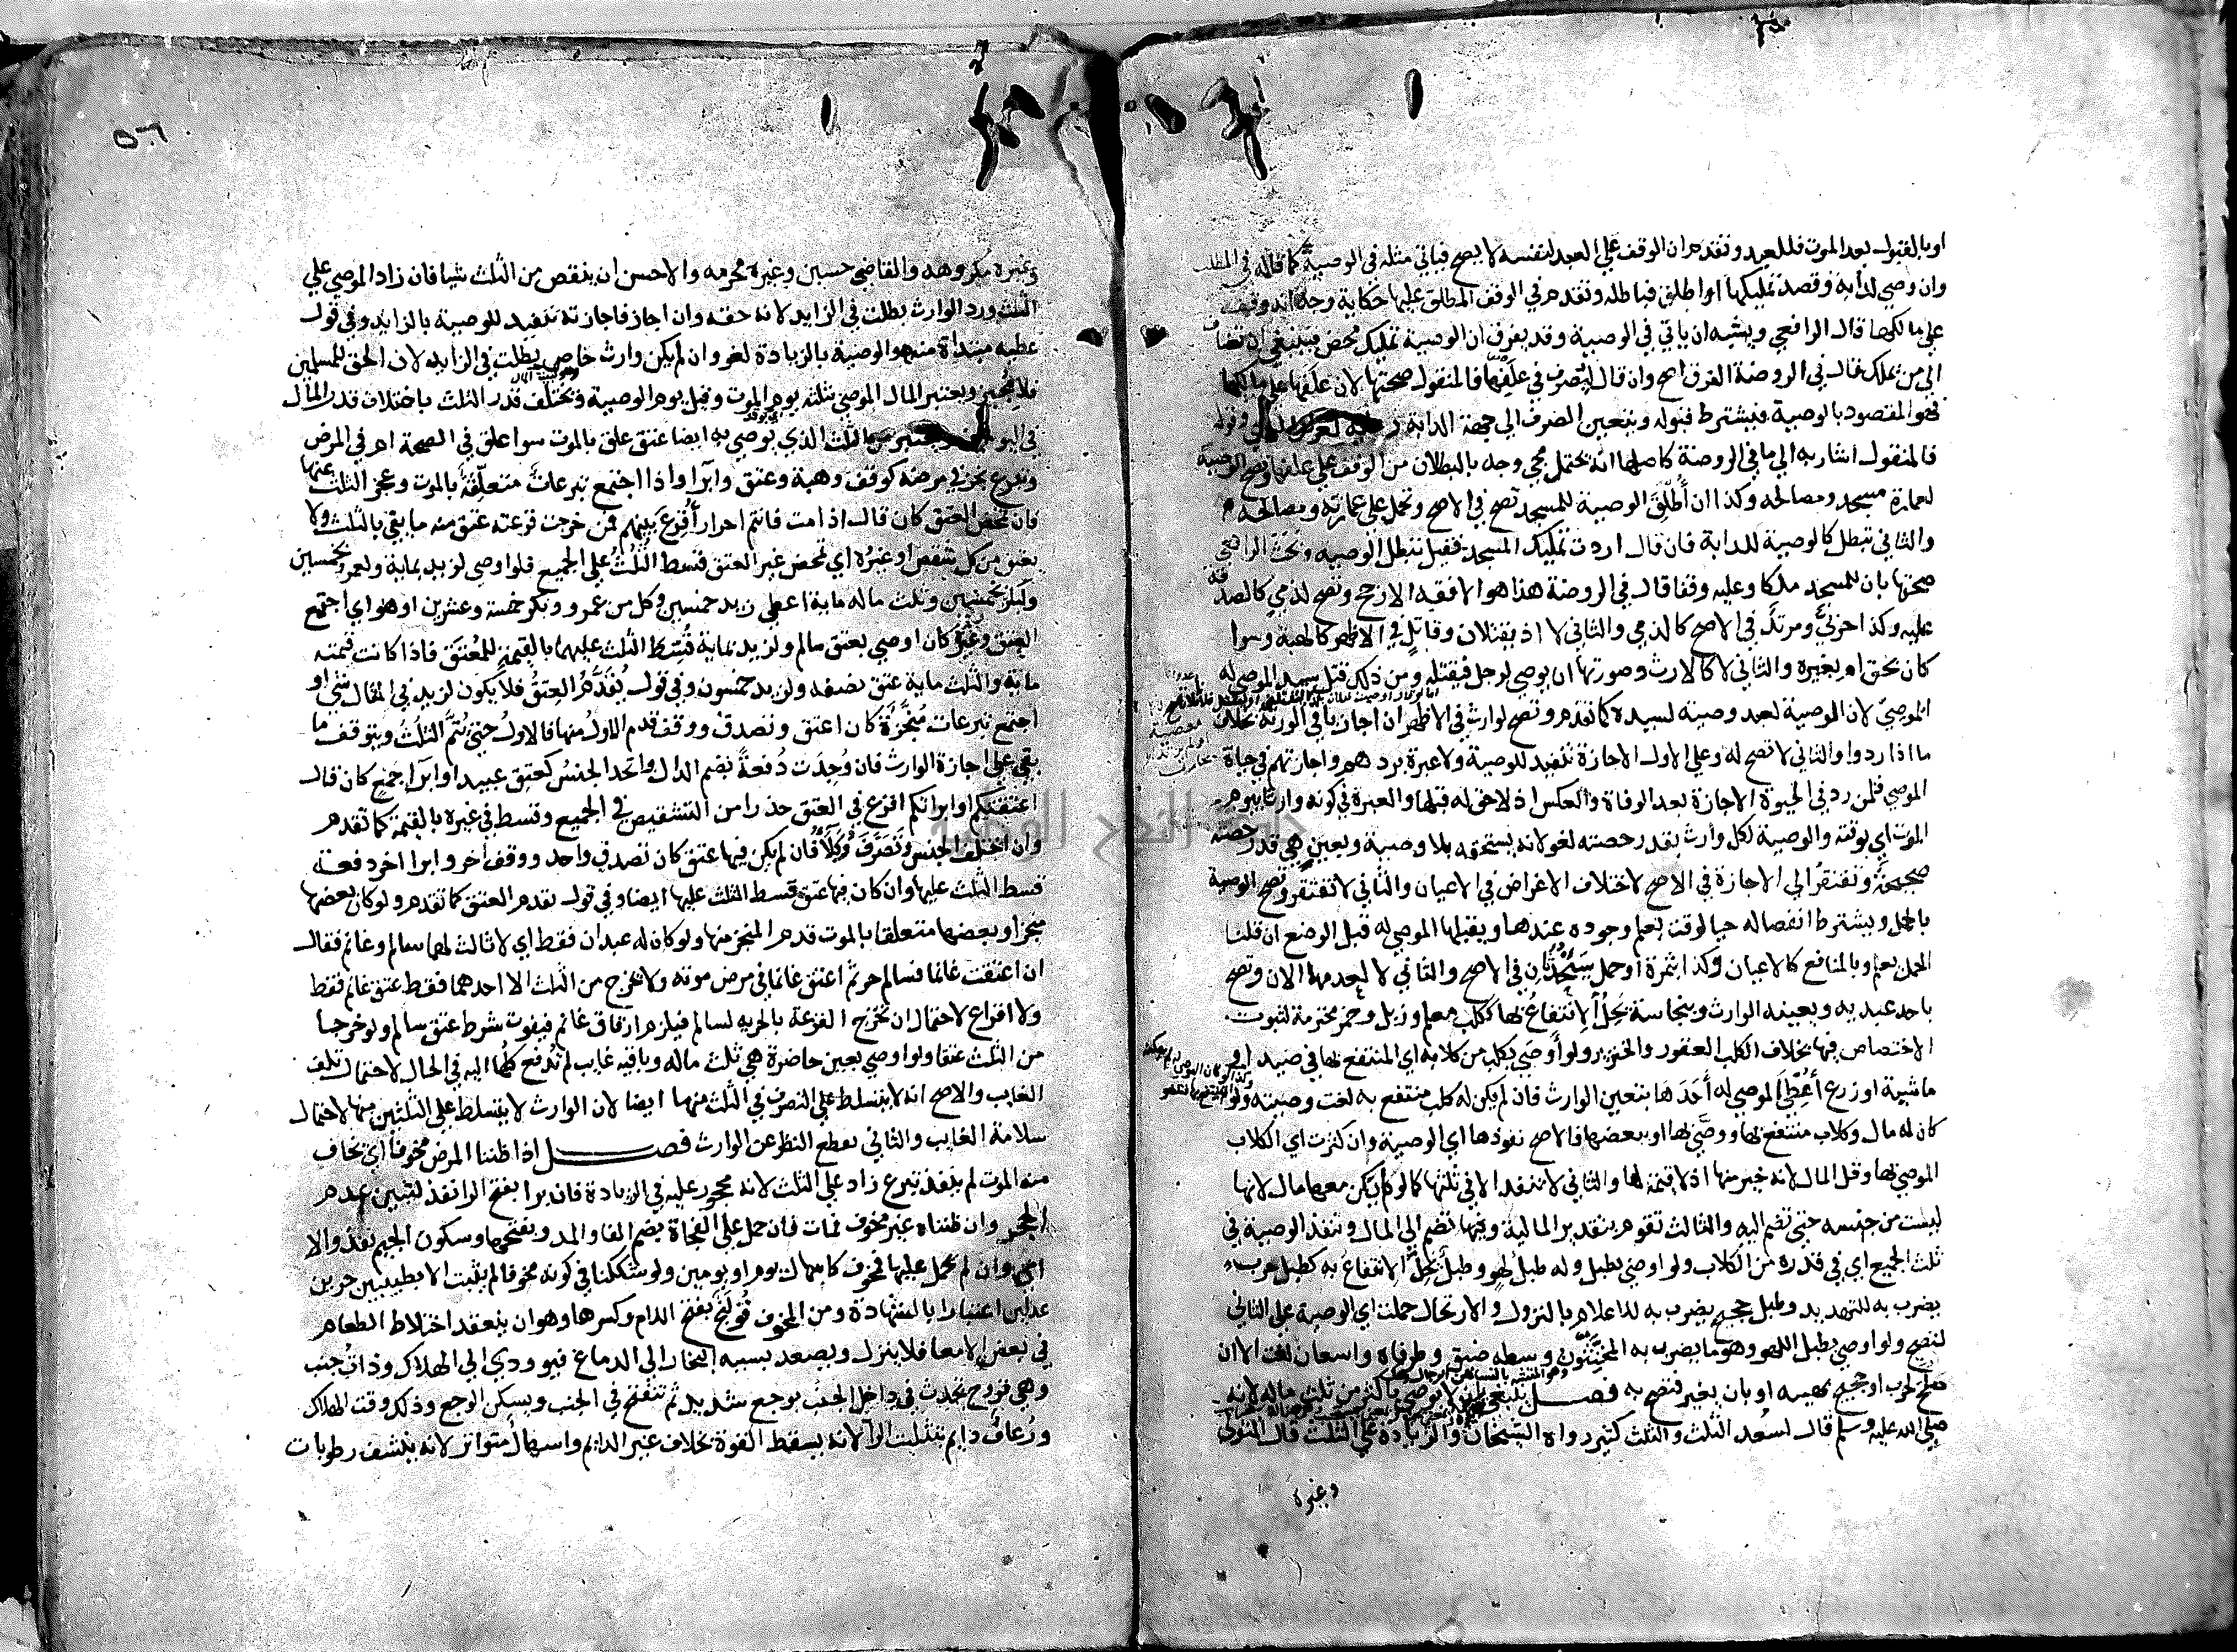 او بالقبول بعد الموت فللعبد وتقدم ان الوقف علي العبد لنفسه لا يصح فياتي مثله في الوصية كما قاله في المطلب
وان وصي لدابة وقصد تمليكها او اطلق فباطله وتقدم في الوقف المطلق عليها حكاية وجه انه وقف
علي مالكها قال الرافعي ويشبه ان ياتي في الوصية وقد يفرق ان الوصية تمليك محض فينبغي ان تضاف
الي من يملك قال في الروضة الفرق اصح وان قال ليصرف في علفها فالمنقول صحتها لان علفها علي مالكها
فهو المقصود بالوصية فيشترط قبوله ويتعين الصرف الي جهة الدابة وقوله
فالمنقول اشار به الي ما في الروضة كاصلها انه يحتمل مجي وجه بالبطلان من الوقف علي علفها وتصح الوصية
لعمارة مسجد ومصالحه وكذا ان أطلق الوصية للمسجد تصح في الاصح وتحمل علي عمارته ومصالحه
والثاني تبطل كالوصية للدابة فان قال اردت تمليك المسجد فقيل تبطل الوصية وبحث الرافعي
صحتها بان للمسجد ملكا وعليه وقفا قال في الروضة هذا هو الافقه الارجح وتصح لذمي كالصدقة
عليه وكذا حربيٌ ومرتدٌ في الاصح كالذمي والثاني لا اذ يقتلان وقاتلٍ في الاظهر كالهبة وسوا
كان بحق او بغيره والثاني لا كالارث وصورتها ان يوصي لرجل فيقتله ومن ذلك قتل سيد الموصي له
الموصِيَ لان الوصية لعبد وصية لسيده كما تقدم وتصح لوارث في الاظهر ان اجاز باقي الورثة بخلاف
ما اذا ردوا والثاني لا تصح له وعلي الاول الاجازة تنفيذ للوصية ولا عبرة بردهم واجازتهم في حياة
الموصي فلمن رد في الحيوة الاجازة بعد الوفاة والعكس اذ لا حق له قبلها والعبرة في كونه وارثا بيوم
الموت اي بوقته والوصية لكل وارث بقدر حصته لغو لانه يستحقه بلا وصية وبعينٍ هي قدر حصته
صحيحةٌ وتفتقر الي الاجازة في الاصح لاختلاف الاغراض في الاعيان والثاني لا تفتقر وتصح الوصية
بالحمل ويشترط انفصاله حيا لوقت يعلم وجوده عندها ويقبلها الموصي له قبل الوضع ان قلنا
الحمل يعلم وبالمنافع كالاعيان وكذا بثمرة او حمل سيحدثان في الاصح والثاني لا لعدمها الان وتصح
باحد عبديه ويعينه الوارث وبنجاسة يحل الانتفاع بها ككلب معلم وزبل وخمر محترمة لثبوت
الاختصاص فيها بخلاف الكلب العقور والخنزير ولو أوصي بكلب من كلابه اي المنتفع بها في صيد او
ماشية او زرع أعطي الموصي له أحدها بتعيين الوارث فان لم يكن له كلب منتفع به لغت وصيته ولو
كان له مال وكلاب منتفع بها ووصي بها او ببعضها فالاصح نفوذها اي الوصية وان كثرت اي الكلاب
الموصي بها وقل المال لانه خير منها اذ لا قيمة لها والثاني لا تنفذ الا في ثلثها كما لو لم يكن معها مال لانها
ليست من جنسه حتي تضم اليه والثالث تقوم بتقدير المالية وقيمها تضم الي المال وتنفذ الوصية في
ثلث الجميع اي في قدره من الكلاب ولو اوصي بطبل وله طبل لهوٍ وطبل يحل الانتفاع به كطبل حرب
يضرب به للتهديد وطبل حجيج يضرب به للاعلام بالنزول والارتحال حملت اي الوصية علي الثاني
لتصح ولو اوصي بطبل اللهو وهو ما يضرب به المخنثون وسطه ضيق وطرفاه واسعان لغت الا ان
صلح لحرب او حجيج بهيئته او بان يغير فتصح به فصل ينبغي ان لا يوصي باكثر من ثلث ماله لانه
صلي الله عليه وسلم قال لسعد الثلث والثلث كثير رواه الشيخان والزيادة علي الثلث قال المتولي
وغيره
٥٦
وغيره مكروهه والقاضي حسين وغيره محرمه والاحسن ان ينقص من الثلث شيا فان زاد الموصي علي
الثلث ورد الوارث بطلت في الزايد لانه حقه وان اجاز فاجازته تنفيذ للوصية بالزايد وفي قول
عطيه مبتداة منه والوصية بالزيادة لغو وان لم يكن وارث خاص بطلت في الزايد لان الحق للمسلمين
فلا مجيز ويعتبر المال الموصي بثلثه يوم الموت وقيل يوم الوصية وتختلف قدر الثلث باختلاف قدر المال
في اليومين ويعتبر من الثلث الذي يوصي به ايضا عتق علق بالموت سوا علق في الصحة ام في المرض
وتبرع نجز في مرضه كوقف وهبة وعتق وابرا واذا اجتمع تبرعات متعلقة بالموت وعجز الثلث عنها
فان تمحض العتق كان قال اذا مت فانتم احرار أقرع بينهم فمن خرجت قرعته عتق منه ما يفي بالثلث ولا
يعتق من كل شقص او غيره اي تمحض غير العتق قسط الثلث علي الجميع فلو اوصي لزيد بماية ولعمرو بخمسين
ولبكر بخمسين وثلث ماله ماية اعطي زيد خمسين وكل من عمرو وبكر خمسة وعشرين او هو اي اجتمع
العتق وغيره كان اوصي بعتق سالم ولزيد بماية قسط الثلث عليهما بالقيمة للمعتق فاذا كانت قيمته
ماية والثلث ماية عتق نصفه ولزيد خمسون وفي قول يقدم العتق فلا يكون لزيد في المثال شي او
اجتمع تبرعات منجزة كان اعتق وتصدق ووقف قدم الاول منها فالاول حتي يتم الثلث ويتوقف ما
بقي علي اجازة الوارث فان وجدت دفعة بضم الدال واتحد الجنس كعتق عبيد او ابرا جمع كان قال
اعتقتكم او ابراتكم اقرع في العتق حذرا من التشقيص في الجميع وقسط في غيره بالقيمة كما تقدم
وان اختلف الجنس وتصرف وكلاء فان لم يكن فيها عتق كان تصدق واحد ووقف اخر وابرا اخر دفعة
قسط الثلث عليها وان كان فيها عتق قسط الثلث عليها ايضا وفي قول يقدم العتق كما تقدم ولو كان بعضها
منجزا وبعضها متعلقا بالموت قدم المنجز منها ولو كان له عبدان فقط اي لا ثالث لهما سالم وغانم فقال
ان اعتقت غانما فسالم حر ثم اعتق غانما في مرض موته ولا يخرج من الثلث الا احدهما فقط عتق غانم فقط
ولا اقراع لاحتمال ان تخرج القرعة بالحرية لسالم فيلزم ارقاق غانم فيفوت شرط عتق سالم ولو خرجا
من الثلث عتقا ولو اوصي بعين حاضرة هي ثلث ماله وباقيه غايب لم تدفع كلها اليه في الحال لاحتمال تلف
الغايب والاصح انه لا يتسلط علي التصرف في الثلث منها ايضا لان الوارث لا يتسلط علي الثلثين منها لاحتمال
سلامة الغايب والثاني يقطع النظر عن الوارث فصل اذا ظننا المرض مخوفا اي يخاف
منه الموت لم ينفذ تبرع زاد علي الثلث لانه محجور عليه في الزيادة فان برا بفتح الرا نفذ لتبين عدم
الحجر وان ظنناه غير مخوف فمات فان حمل علي الفجاة بضم الفا والمد وبفتحها وسكون الجيم نفذ والا
اي وان لم يحمل عليها فمخوف كاسهال يوم او يومين ولو شككنا في كونه مخوفا لم يثبت الا بطبيبين حرين
عدلين اعتبارا بالشهادة ومن المخوف قولنج بفتح اللام وكسرها وهو ان ينعقد اختلاط الطعام
في بعض الامعا فلا ينزل ويصعد بسببه البخار الي الدماغ فيودي الي الهلاك وذات جنب
وهي قروح تحدث في داخل الجنب بوجع شديد ثم تنفتح في الجنب ويسكن الوجع وذلك وقت الهلاك
ورعاف دايم بتثليث الرا لانه يسقط القوة بخلاف غير الدايم واسهال متواتر لانه ينشف رطوبات